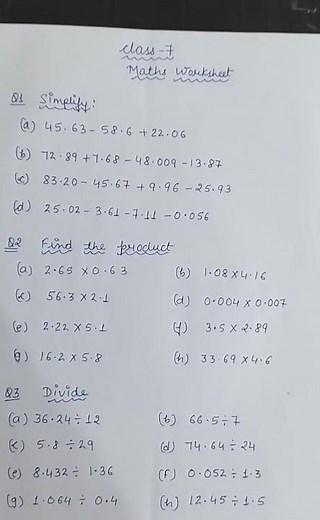 Class-7
Maths Worksheet
Q1 Simplify:
(a) 45.63 - 58.6 + 22.06
(b) 72.89 + 7.68 - 48.009 - 13.87
(c) 83.20 - 45.67 + 9.96 - 25.93
(d) 25.02 - 3.61 - 7.11 - 0.056
Q2 Find the product
(a) 2.65 × 0.63 (b) 1.08 × 4.16
(c) 56.3 × 2.1 (d) 0.004 × 0.007
(e) 2.22 × 5.1 (f) 3.5 × 2.89
(g) 16.2 × 5.8 (h) 33.69 × 4.6
Q3 Divide
(a) 36.24 ÷ 12 (b) 66.5 ÷ 7
(c) 5.8 ÷ 29 (d) 74.64 ÷ 24
(e) 8.432 ÷ 1.36 (f) 0.052 ÷ 1.3
(g) 1.064 ÷ 0.4 (h) 12.45 ÷ 1.5